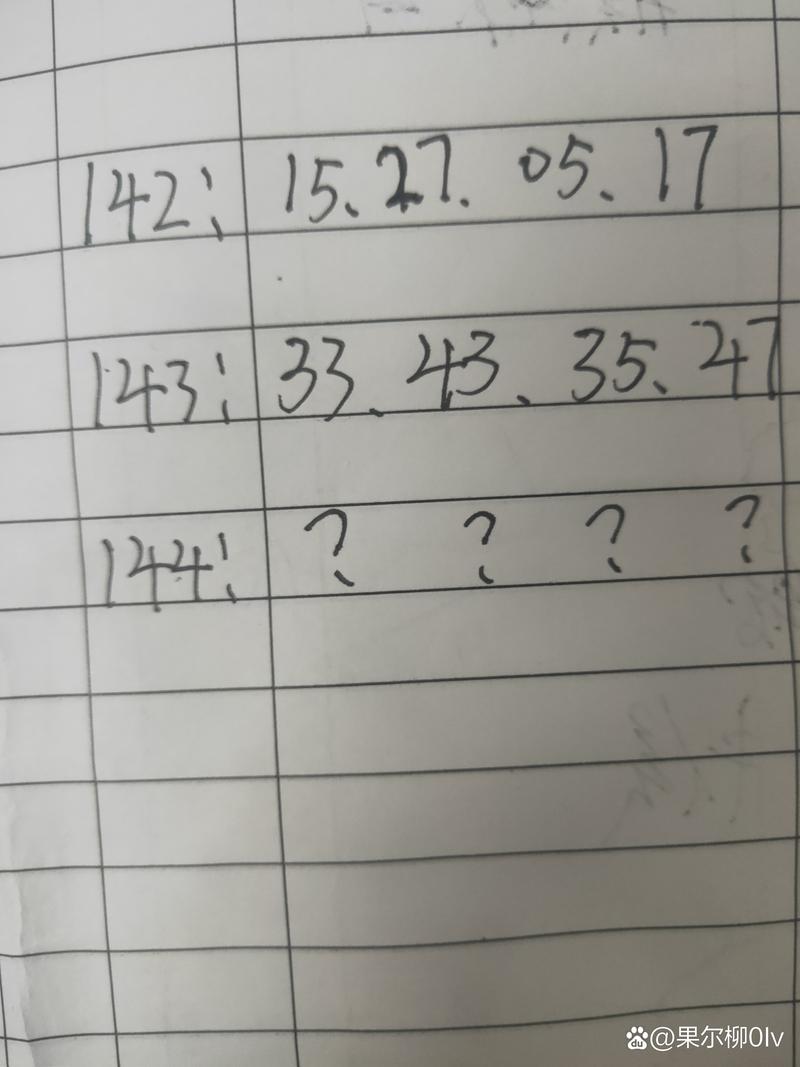 142: 15、27. 05、17
143: 33、43、35、47
144: ? ? ? ?
du @果尔柳0lv